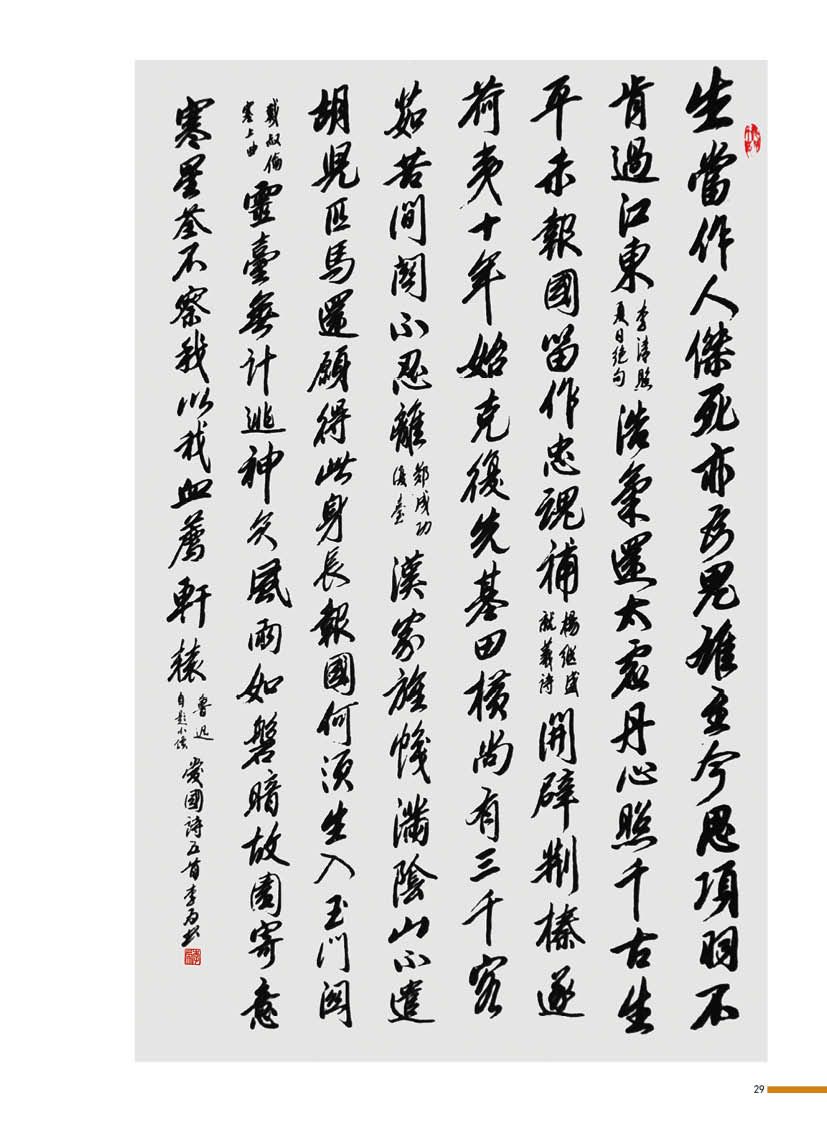 生當作人傑死亦為鬼雄至今思項羽不
肯過江東
李清照
夏日絕句
浩氣還太虛丹心照千古生
平未報國留作忠魂補
楊繼盛
就義詩
開闢荆榛逐
荷夷十年始克復先基田橫尚有三千客
茹苦間關不忍離
鄭成功
復臺
漢家旌幟滿陰山不遣
胡兒匹馬還願得此身長報國何須生入玉門關
戴叔倫
塞上曲
靈臺無計逃神矢風雨如磐暗故園寄意
寒星荃不察我以我血薦軒轅
魯迅
自題小像
愛國詩五首李
29